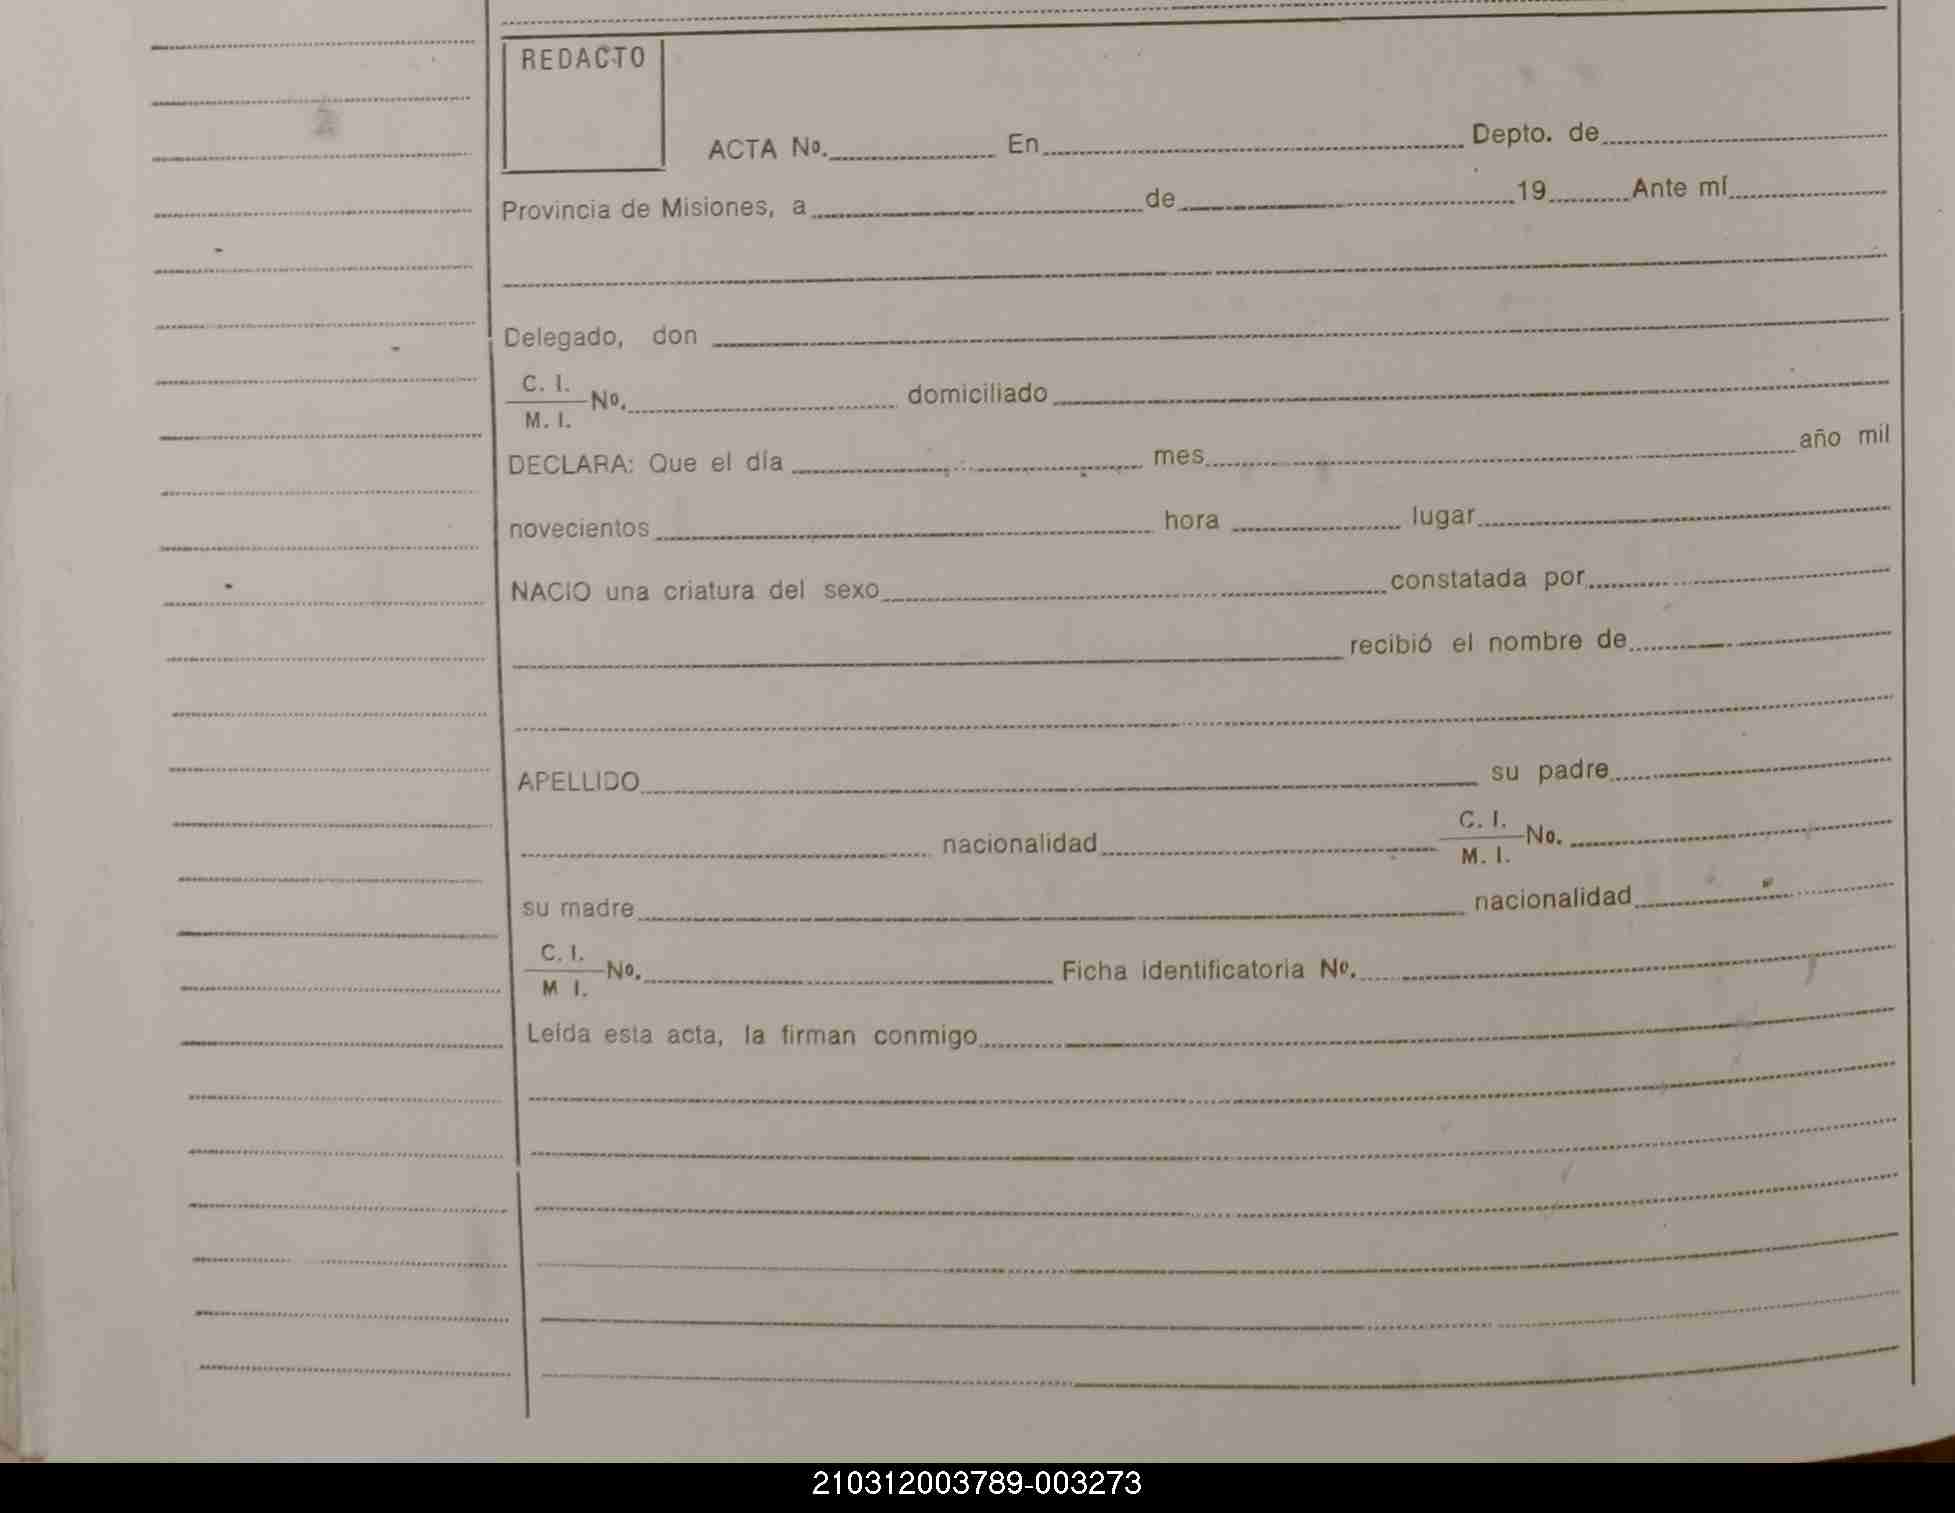 REDACTO
ACTA Nº. En Depto. de
Provincia de Misiones, a de 19 Ante mí
Delegado, don
C. I.
M. I. Nº. domiciliado
DECLARA: Que el día mes año mil
novecientos hora lugar
NACIO una criatura del sexo constatada por
recibió el nombre de
APELLIDO su padre
nacionalidad C. I.
M. I. No.
su madre nacionalidad
C. I.
M I. Nº. Ficha identificatoria Nº.
Leída esta acta, la firman conmigo
210312003789-003273